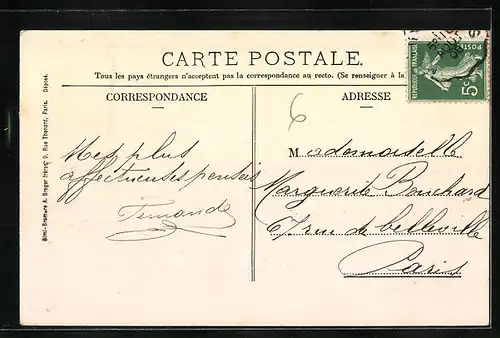 CARTE POSTALE.
Tous les pays étrangers n'acceptent pas la correspondance au recto. (Se renseigner à la
CORRESPONDANCE
ADRESSE
6
Mes plus
affectueuses pensées
Fernande
Mademoiselle
Marguerite Bouchard
67 rue de belleville
Paris
REPUBLIQUE FRANÇAISE
5c
Simi-Bromure A. Breger frères, 9, Rue Thénard, Paris. Déposé.